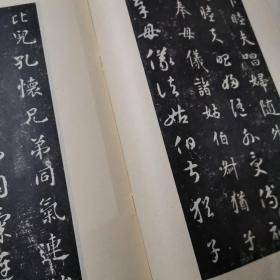 下睦夫唱婦隨
睦夫唱婦隨外受傅
奉母儀諸姑伯叔猶子
奉母儀諸姑伯叔猶子
比兒孔懷兄弟同氣連